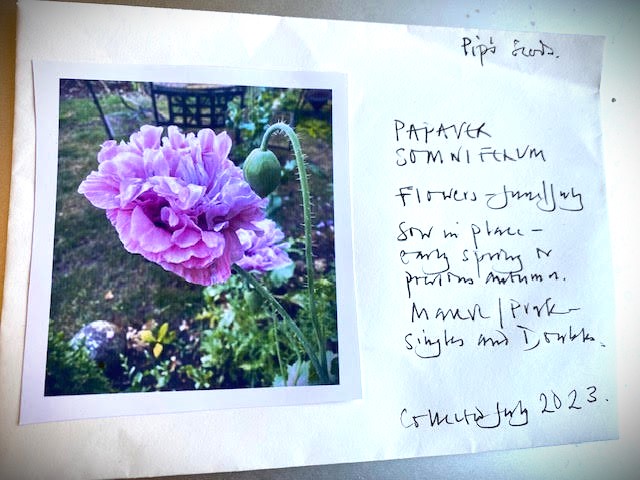 Pip's Seeds.
PAPAVER
SOMNIFERUM
Flowers - June/July
Sow in place -
early spring or
previous autumn.
Mauve/Pink -
singles and Doubles.
Collected July 2023.